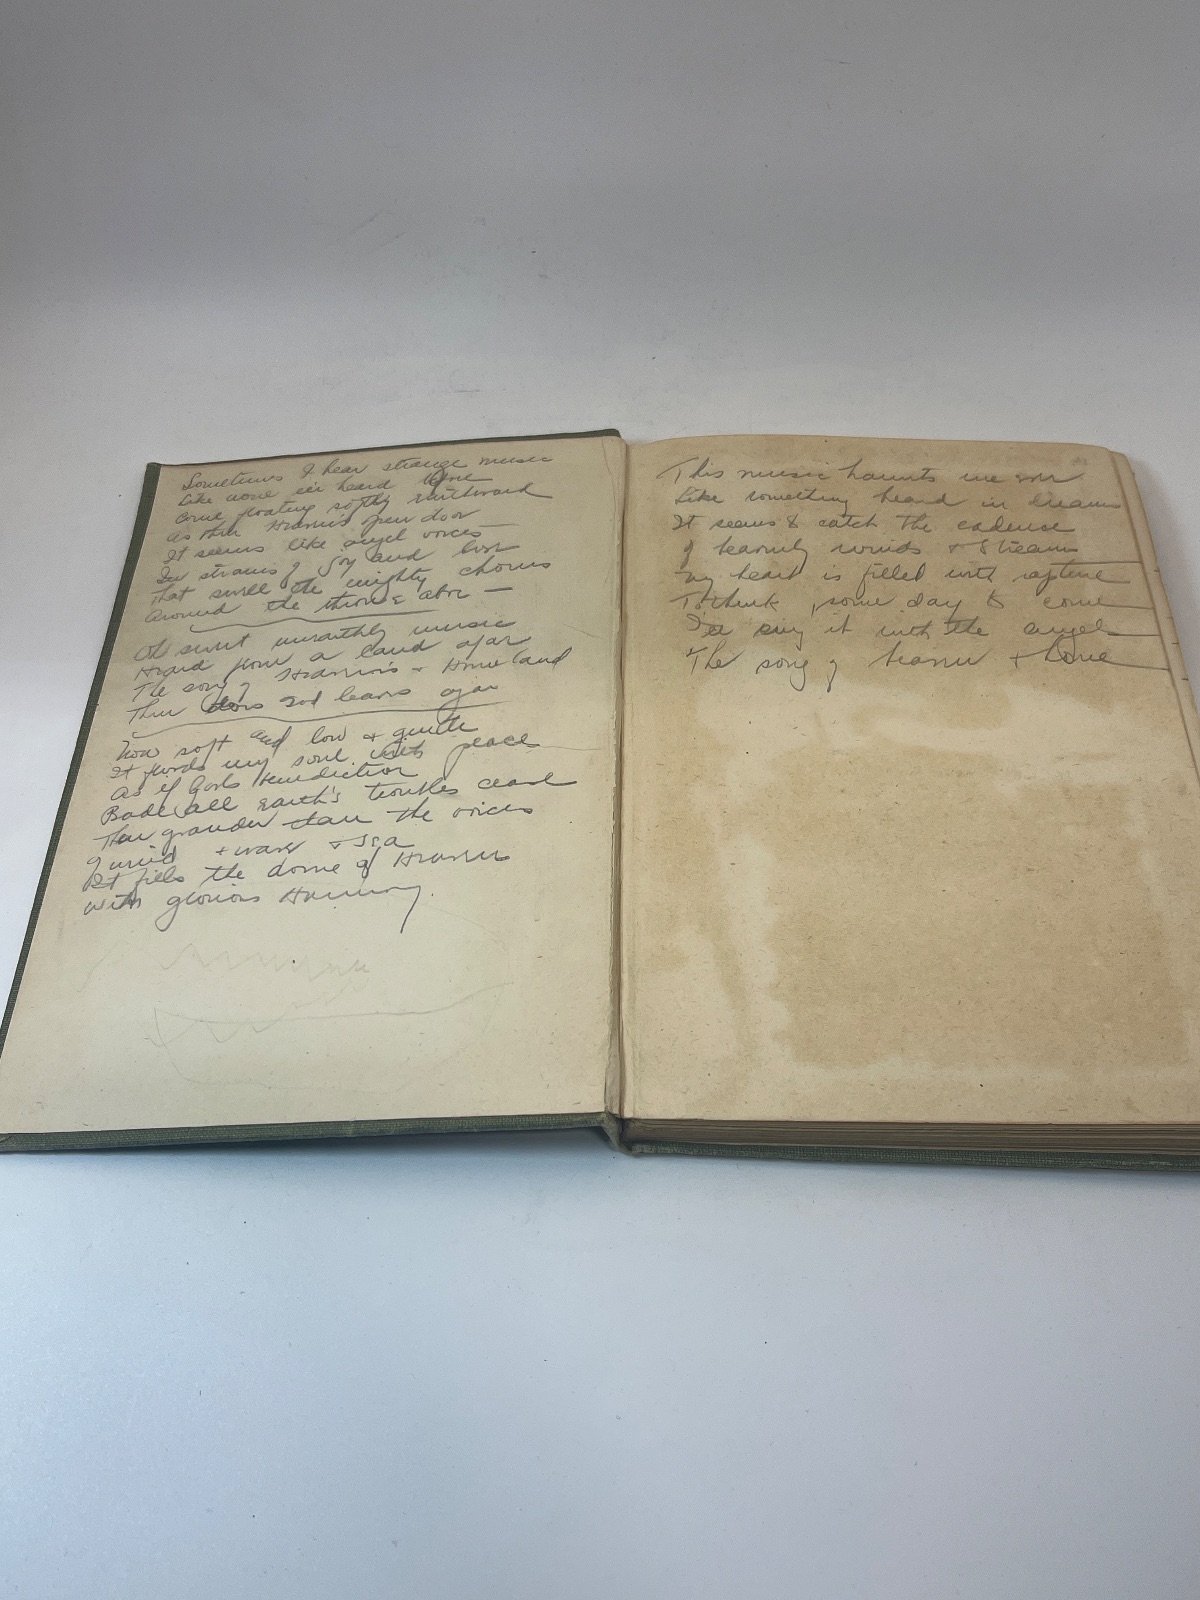 Sometimes I hear strange music
Like none e'er heard before
Come floating softly earthward
As thru Heaven's open door
It seems like angel voices
In strains of joy and love
That swell the mighty chorus
Around the throne above —
Oh sweet unearthly music
Heard from a land afar
The song of Heaven's + Homeland
Thru doors God leaves ajar
How soft and low + gentle
It floods my soul with peace
As if God's benediction
Bade all earth's troubles cease
Then grander than the voices
of wind + wave + sea
It fills the dome of Heaven
with glorious Harmony.
This music haunts me ever
Like something heard in dreams
It seems to catch the cadence
of heavenly winds + streams
My heart is filled with rapture
To think, some day to come
I'll sing it with the angels
The song of heaven + home